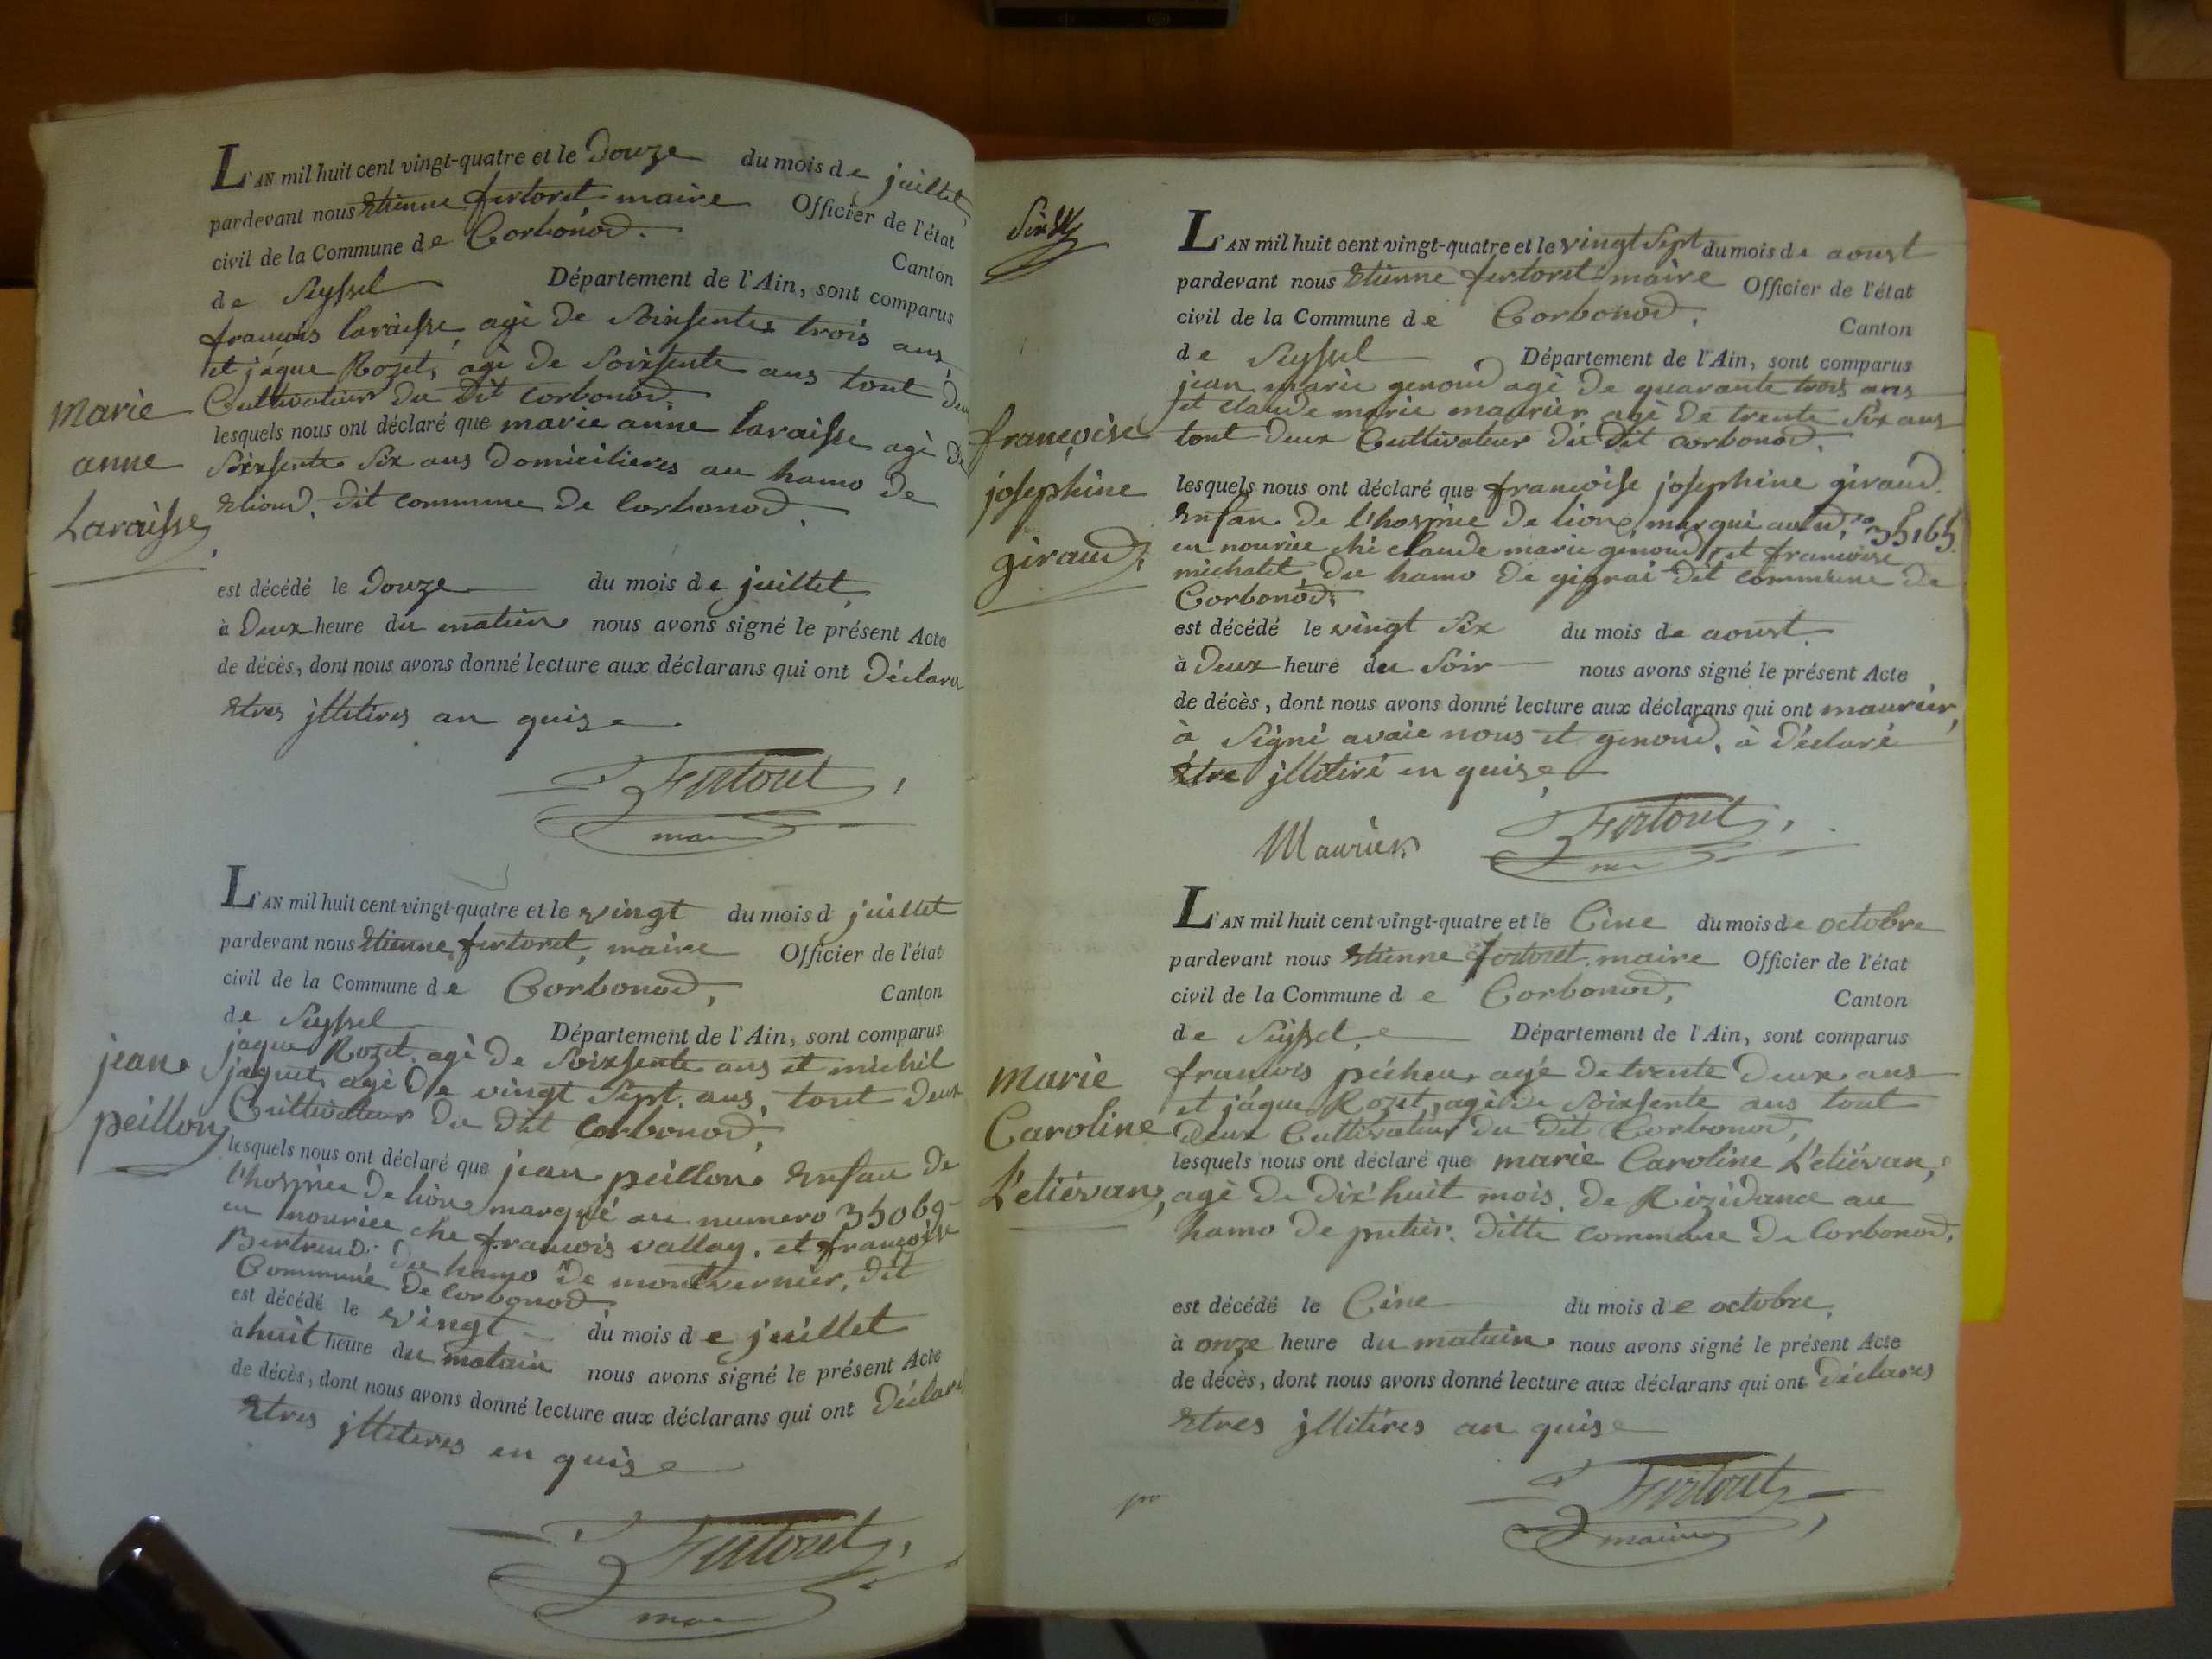 L'AN mil huit cent vingt-quatre et le Douze du mois de juillet,
pardevant nous Etienne fertoret maire Officier de l'état
civil de la Commune de Corbonod. Canton
de Seyssel Département de l'Ain, sont comparus
francois laraisse, agè de Soixsentes trois ans,
et jáque Rozet, agè de Soixsente ans tout deux
Cultivateur du Dit corbonod.
lesquels nous ont déclaré que marie anne laraisse agè de
Soixsente Six ans Domicilieres au hamo de
Etiond, dit commune de Corbonod.
Marie
anne
Laraisse,
est décédé le Douze du mois de juillet,
à Deux heure du matien nous avons signé le présent Acte
de décès, dont nous avons donné lecture aux déclarans qui ont Déclares
Etres jlliteres an quise
Fertoret
L'AN mil huit cent vingt-quatre et le vingt du mois d juillet
pardevant nous Etienne fertoret, maire Officier de l'état
civil de la Commune de Corbonod, Canton
de Seyssel Département de l'Ain, sont comparus
jaque Rozet, agè de Soixsente ans et michel
jaquet, agè De vingt Sept, ans, tout Deux
Cultivateur Du Dit Corbonod,
jean
peillon,
lesquels nous ont déclaré que jean peillon Enfan De
l'hospice De lion marqué au numero 35069
en nourice che francois vallay, et francoise
Bertrend, du hamo De montvernier, Dit
Commune De Corbonod
est décédé le vingt du mois de juillet
a huit heure du matain nous avons signé le présent Acte
de décès, dont nous avons donné lecture aux déclarans qui ont Déclares
Etres jlliteres en quise
Fertoret
L'AN mil huit cent vingt-quatre et le vingt Sept du mois de aoust
pardevant nous Etienne fertoret maire Officier de l'état
civil de la Commune de Corbonod, Canton
de Seyssel Département de l'Ain, sont comparus
jean marie genoud agè de quarante trois ans
et claude marie maurier agè De trente Six ans
tout Deux Cultivateur Du Dit corbonod,
françoise
josephine
giraud,
lesquels nous ont déclaré que francoise josephine giraud
Enfan De l'hospice De lion, marqué au n.ro 35165
en nourice ché claude marie genoud, et francoise
michalet, Du hamo De gignai Dit commune De
Corbonod,
est décédé le vingt Six du mois de aoust
à Deux heure du Soir nous avons signé le présent Acte
de décès, dont nous avons donné lecture aux déclarans qui ont maurier,
à Signé avaie nous et genoud, à Déclaré
Etre jllitiré en quise
Maurier Fertoret
L'AN mil huit cent vingt-quatre et le Cinc du mois de octobre
pardevant nous Etienne fertoret maire Officier de l'état
civil de la Commune de Corbonod, Canton
de Seyssel Département de l'Ain, sont comparus
francois pécheu agé De trente Deux ans
et jáque Rozet, agè de Soixsente ans tout
Deux Cultivateur Du Dit Corbonod,
Marie
Caroline
L'etiévan,
lesquels nous ont déclaré que marie Caroline L'etiévan,
agè De Dix'huit mois, De Rizidance au
hamo De putier, Ditte commune De Corbonod,
est décédé le Cinc du mois de octobre,
à onze heure du matain nous avons signé le présent Acte
de décès, dont nous avons donné lecture aux déclarans qui ont Déclares
Etres jllitéres an quise
Fertoret
maire